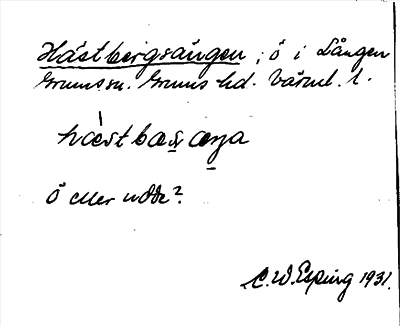 Hästbergsängen, ö i Lången
Grums sn. Grums hd. Värml. l.
hæstbæsæŋa
Ö eller udde?
C.W. Esping 1931.